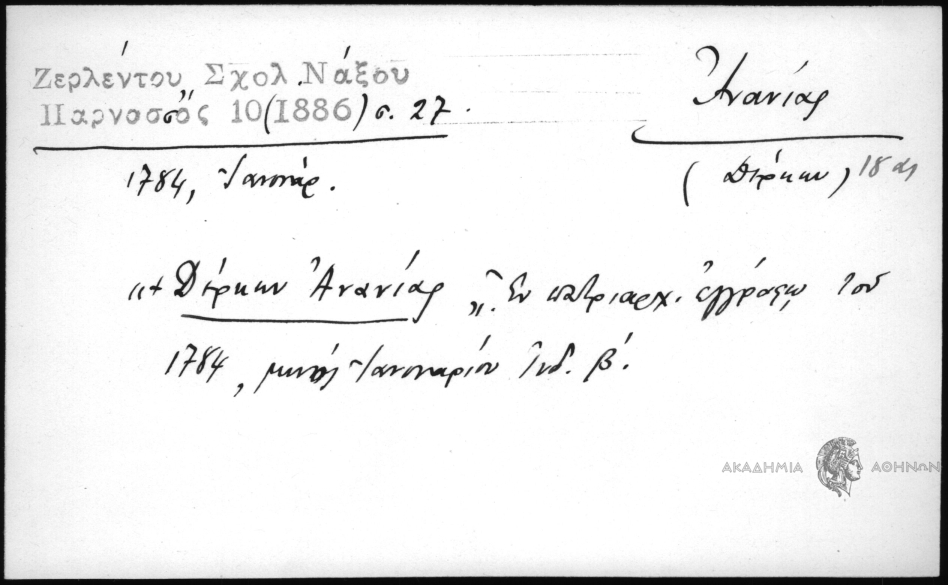 Ζερλέντου, Σχολ. Νάξου
Παρνασσός 10 (1886) σ. 27.
Ἀνανίας
1784, Ἰανουάρ.
(Δέρκων) 18 αι
"+ Δέρκων Ἀνανίας". Ἐν πατριαρχ. ἐγγράφῳ τοῦ
1784, μηνός Ἰανουαρίου Ἰνδ. β΄.
ΑΚΑΔΗΜΙΑ ΑΘΗΝΩΝ